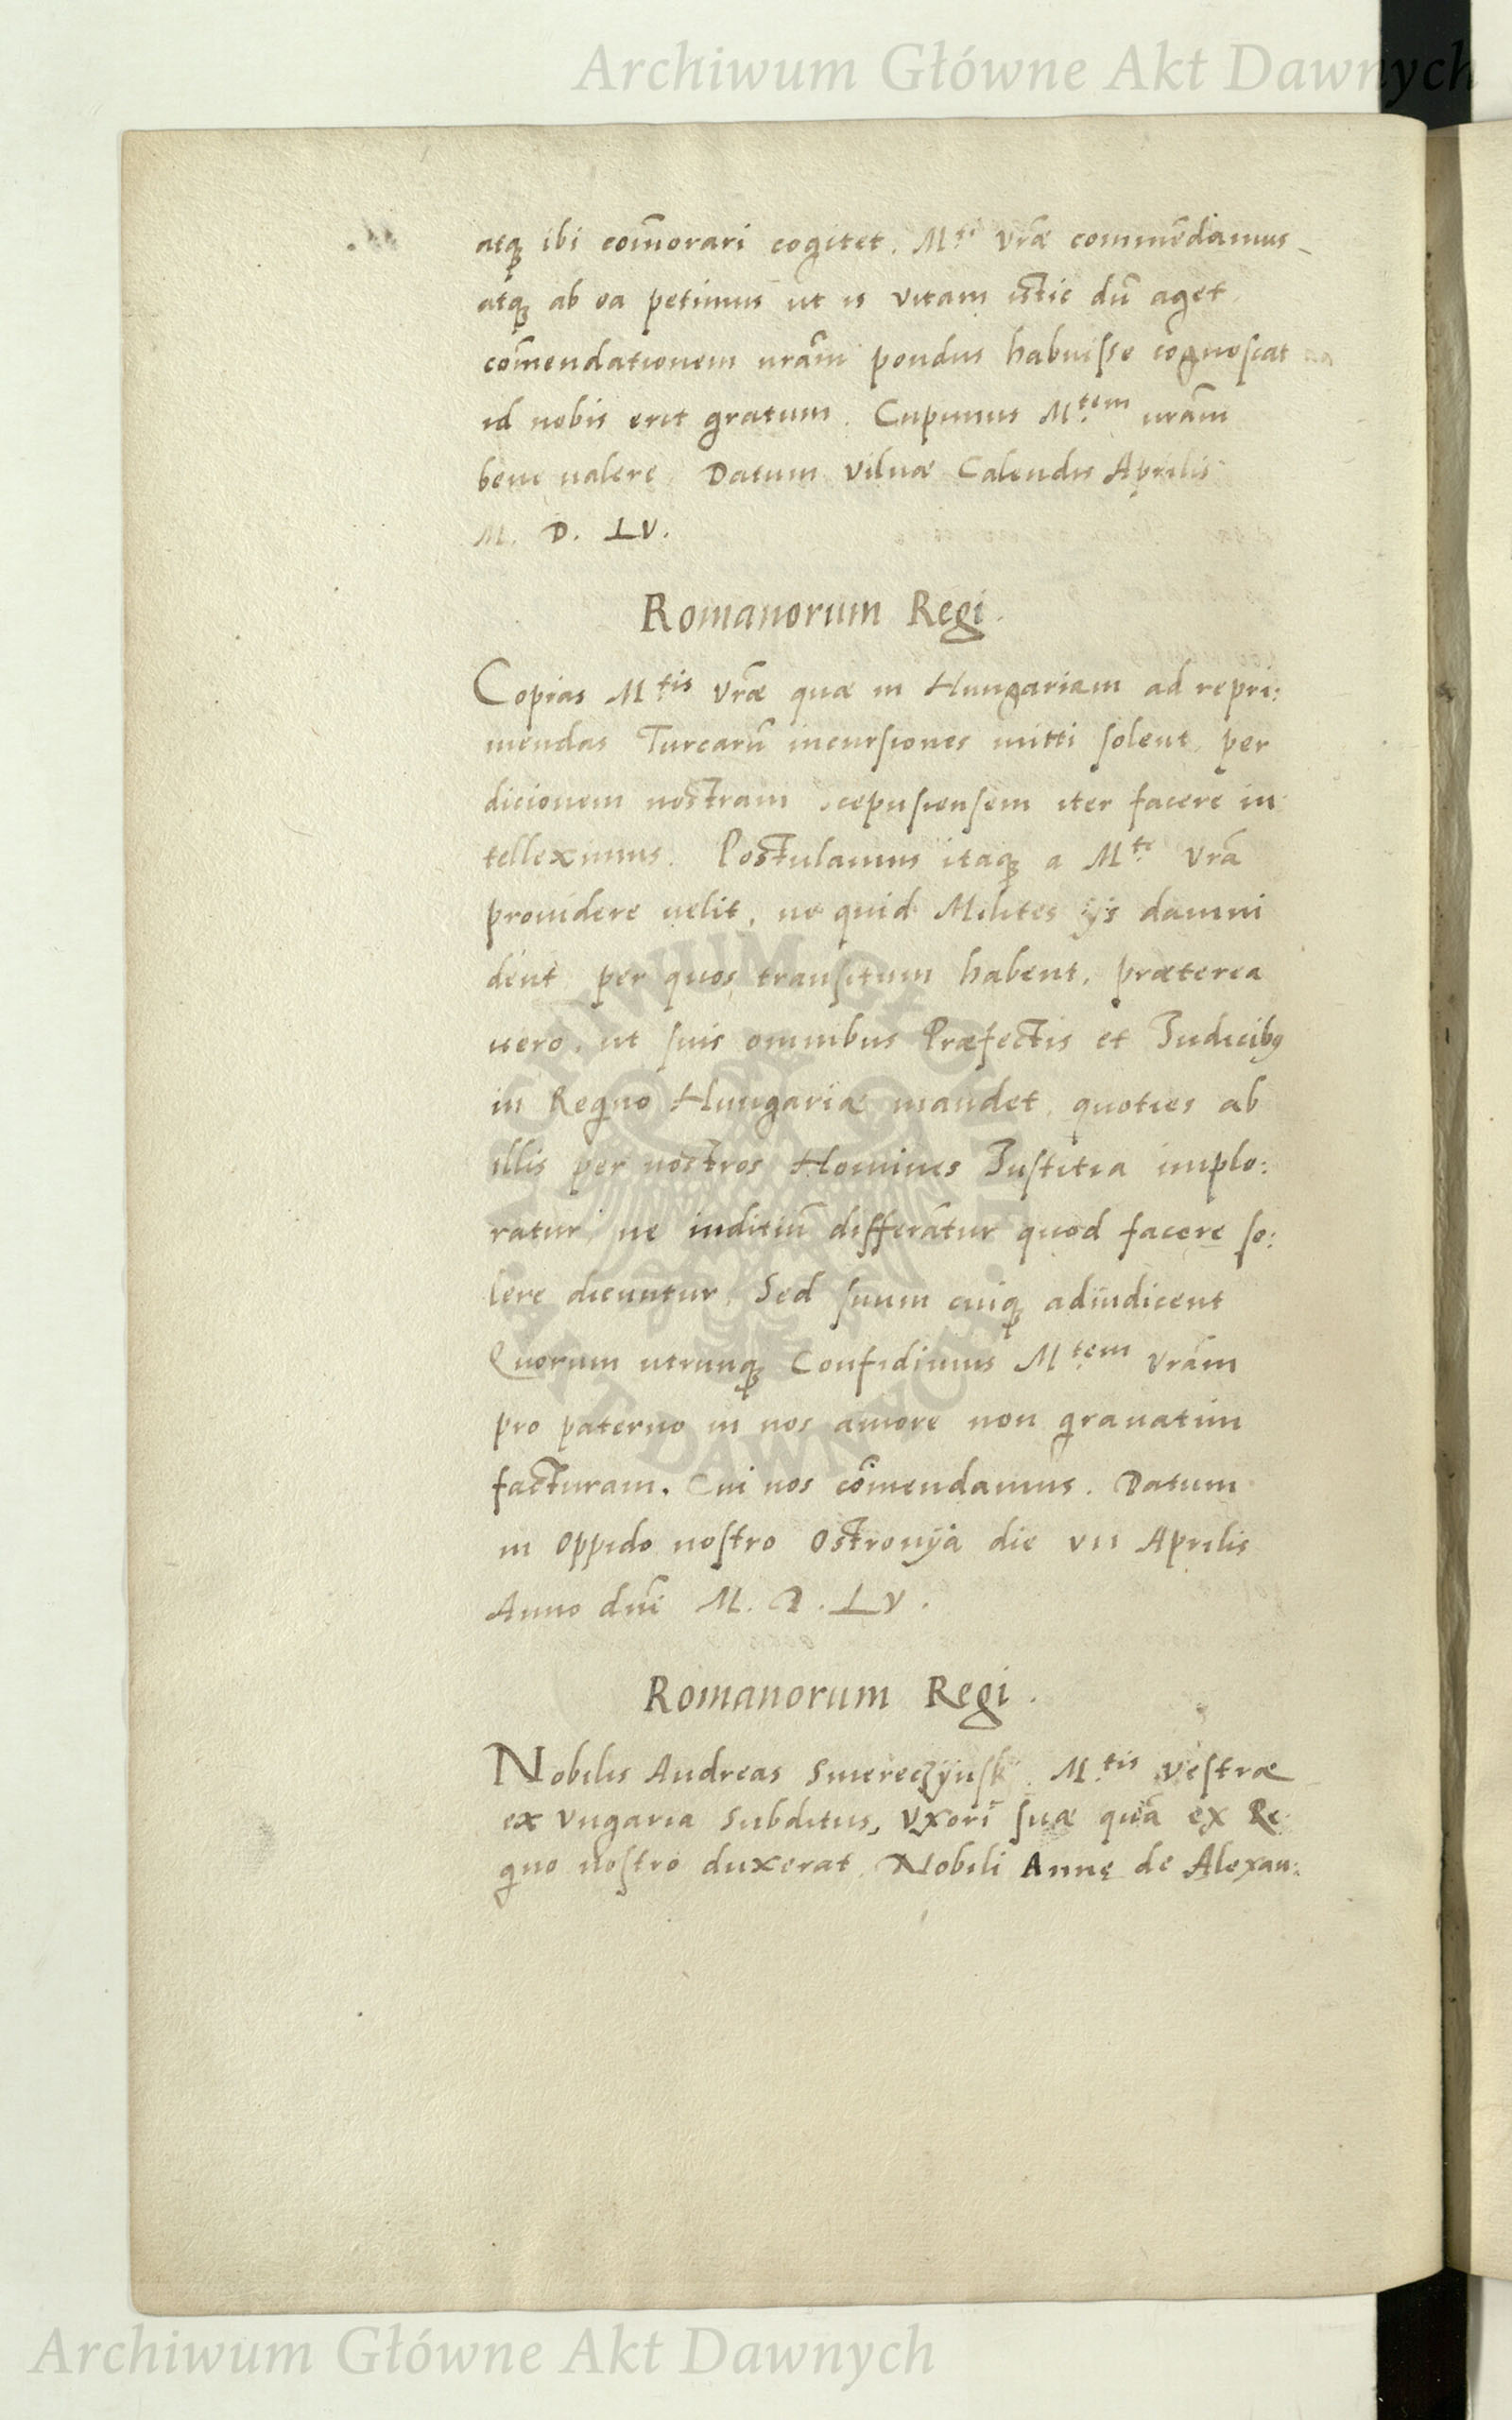 Archiwum Główne Akt Dawnych
atq̃ ibi com̃orari cogitet. M.ti Vr̃æ commẽdamus
atq̃ ab ea petimus ut is vitam istic dũ aget,
com̃endationem nr̃am pondus habuisse cognoscat
id nobis erit gratum. Cupimus M.tem uram̃
bene ualere. Datum Vilnæ Calendis Aprilis
M. D. LV.
Romanorum Regi.
Copias M.tis Vr̃æ quæ in Hungariam ad repri:
mendas Turcarũ incursiones mitti solent, per
dicionem nostram Scepusiensem iter facere in
telleximus. Postulamus itaq̃ a M.te Vrã
prouidere uelit, ne quid Milites ijs damni
dent per quos transitum habent, præterea
uero, ut suis omnibus Præfectis et Iudicibꝰ
in Regno Hungariæ mandet, quoties ab
illis per nostros Homines Iustitia implo:
ratur, ne inditiũ differãtur quod facere so:
lere dicuntur, Sed suum cuiq̃ adiudicent
Quorum utrunq̃ Confidimus M.tem Vram̃
pro paterno in nos amore non grauatim
facturam. Cui nos com̃endamus. Datum
in Oppido nostro Ostrouÿa die VII Aprilis
Anno dnĩ M. D. LV.
Romanorum Regi.
Nobilis Andreas Smereczÿnski M.tis Vestræ
ex Vngaria Subditus, Vxori suæ quã ex Re
gno nostro duxerat, Nobili Annę de Alexan:
ARCHIWUM GŁÓWNE AKT DAWNYCH
Archiwum Główne Akt Dawnych